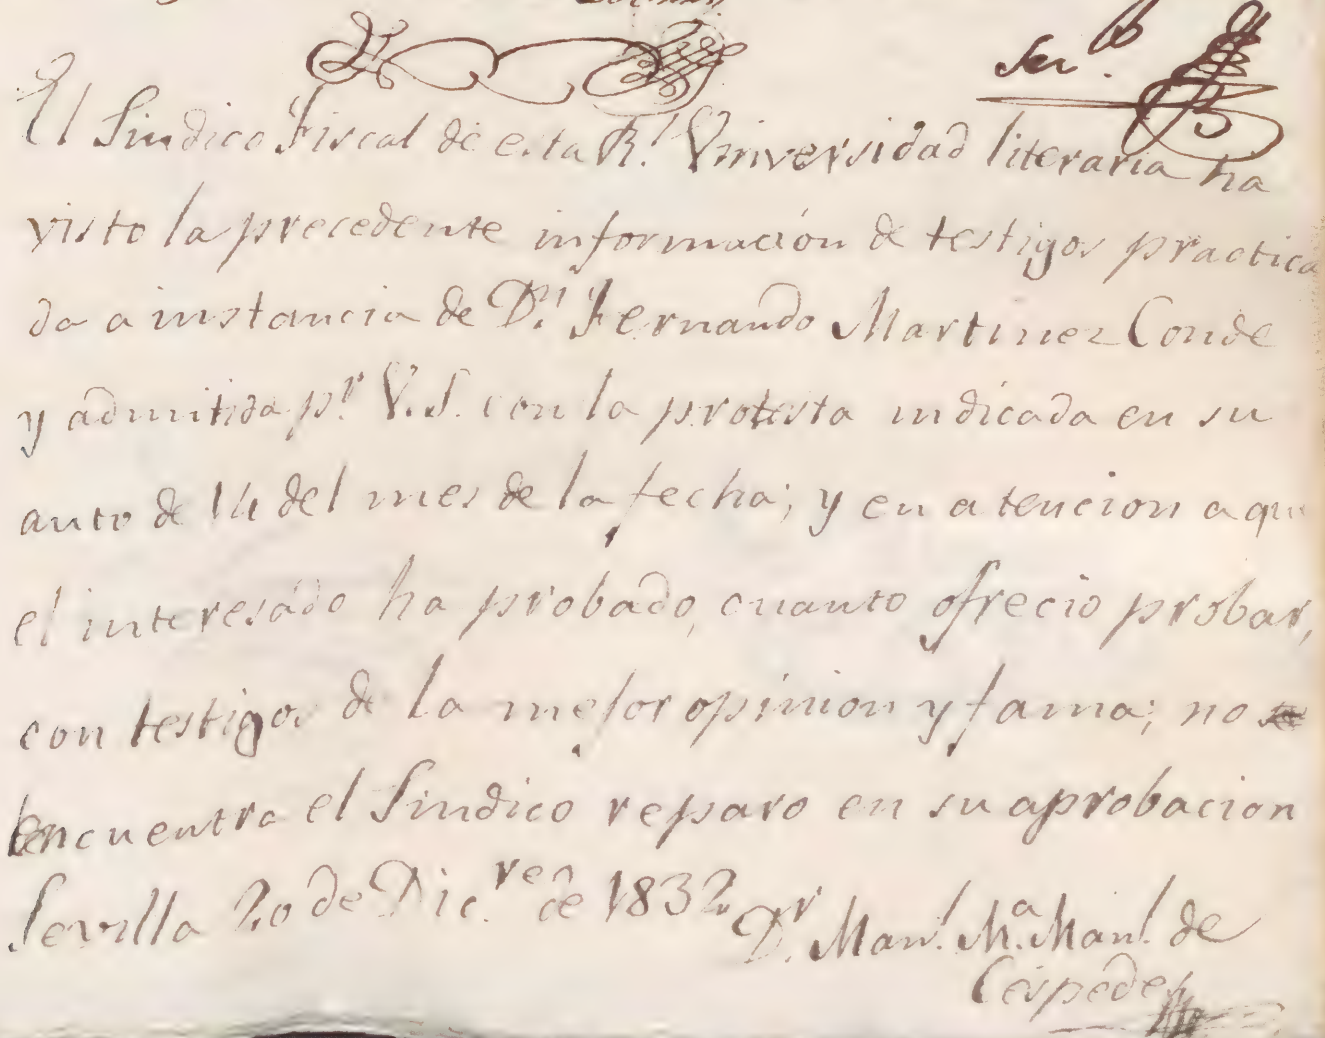 El Sindico Fiscal de esta Rl. Vniversidad literaria ha
visto la precedente información de testigos practica
da a instancia de Dn. Fernando Martinez Conde
y admitida pr. V.S. con la protesta indicada en su
auto de 14 del mes de la fecha; y en atencion a que
el interesado ha probado, cuanto ofrecio probar,
con testigos de la mejor opinion y fama; no
encuentra el Sindico reparo en su aprobacion
Sevilla 20 de Dic.re de 1832.
Dr. Manl. Ma. Manl. de
Cespedes